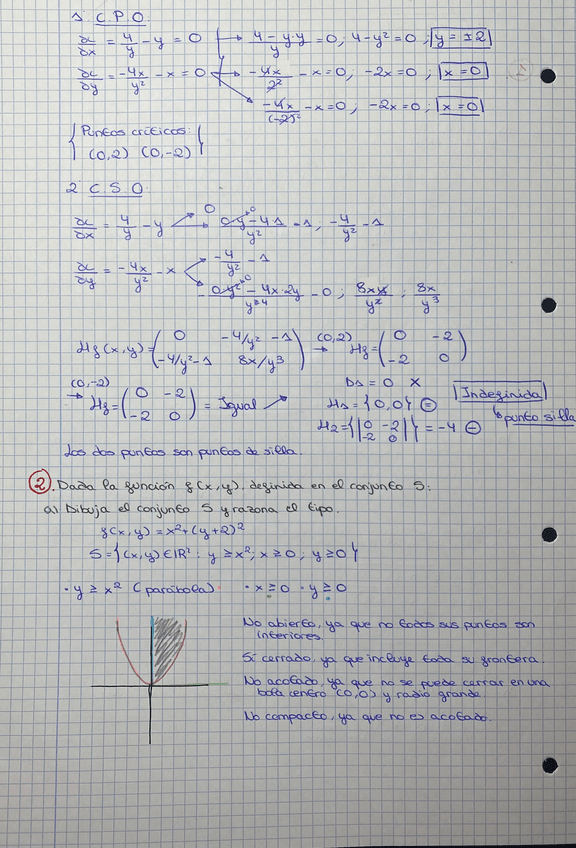 1. C.P.O
∂L/∂x = 4/y - y = 0 → 4 - y·y/y = 0; 4 - y² = 0; y = ±2
∂L/∂y = -4x/y² - x = 0 → -4x/2² - x = 0; -2x = 0; x = 0
-4x/(-2)² - x = 0; -2x = 0; x = 0
{ Puntos críticos:
(0,2) (0,-2) }
2 C.S.O.
∂L/∂x = 4/y - y → 0
0·y - 4·1/y² - 1; -4/y² - 1
∂L/∂y = -4x/y² - x → -4/y² - 1
- 0·y² - 4x·2y/y⁴ - 0; 8xy/y²; 8x/y³
Hf(x,y) = ( 0 -4/y² -1 -4/y² -1 8x/y³ ) (0,2) → Hf = ( 0 -2 -2 0 )
(0,-2) → Hf = ( 0 -2 -2 0 ) = Igual ↗
D1 = 0 X
H1 = {0,0} ⊖ Indefinida
H2 = {|0 -2 -2 0|} = -4 ⊖ ↳ punto silla
Los dos puntos son puntos de silla.
2. Dada la función f(x,y), definida en el conjunto S:
a) Dibuja el conjunto S y razona el tipo.
f(x,y) = x² + (y+2)²
S = {(x,y) ∈ IR² : y ≥ x²; x ≥ 0; y ≥ 0}
· y ≥ x² (parábola) · x ≥ 0 · y ≥ 0
No abierto, ya que no todos sus puntos son
interiores.
Sí cerrado, ya que incluye toda su frontera.
No acotado, ya que no se puede cerrar en una
bola centro (0,0) y radio grande
No compacto, ya que no es acotado.